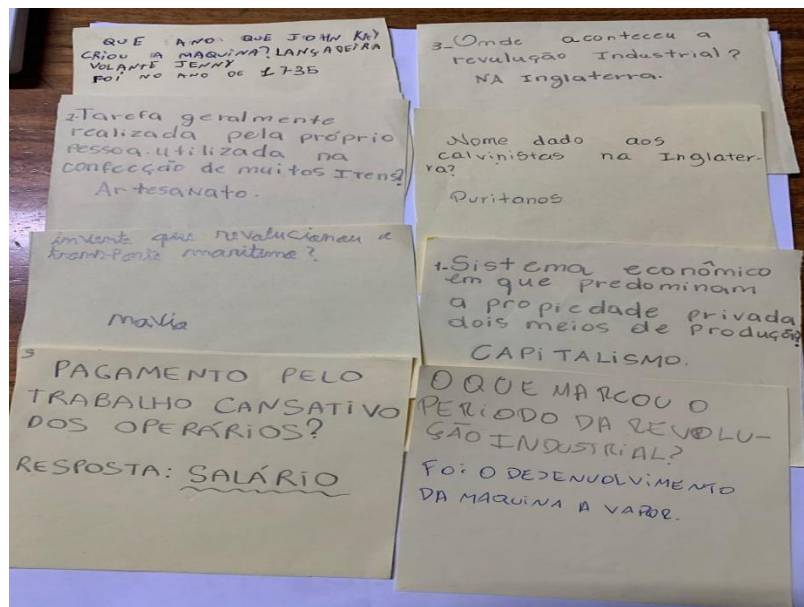 QUE ANO QUE JOHN KAY
CRIOU A MAQUINA? LANÇADEIRA
VOLANTE JENNY
FOI NO ANO DE 1735
2-Tarefa geralmente
realizada pela próprio
pessoa.utilizada na
confecção de muitos Itens?
ArtesaNato.
que revalucionou a
maritimo?
PAGAMENTO PELO
TRABALHO CANSATIVO
DOS OPERÁRIOS?
RESPOSTA: SALÁRIO
3-Omde aconteceu a
revulução Industrial?
NA Inglaterra.
Nome dado aos
calvinistas na Inglater-
ra?
Puritanos
1-Sistema econômico
em que predominam
a propiedade privada
dois meios de produção?
CAPITALISMO.
O QUE MARCOU O
PERIODO DA REVOLU-
ÇÃO INDUSTRIAL?
FOI O DESENVOLVIMENTO
DA MAQUINA A VAPOR.